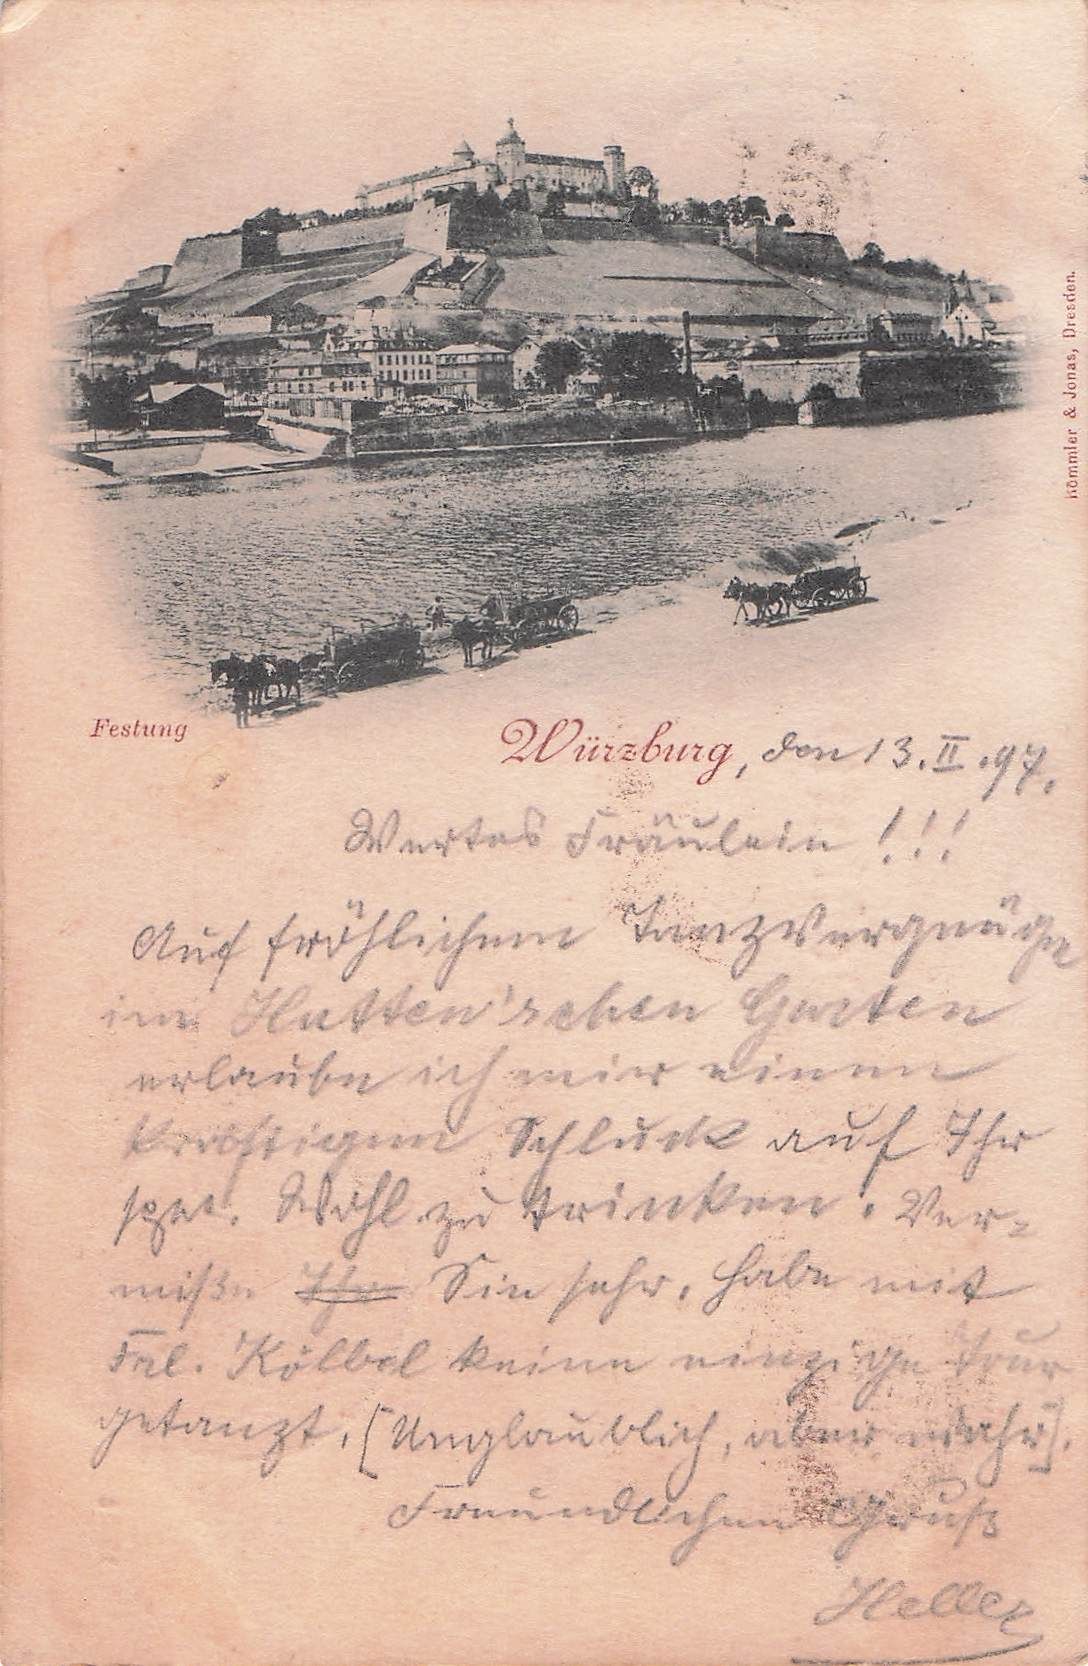 Römmler & Jonas, Dresden.
Festung
Würzburg, den 13.II.97.
Wertes Fräulein!!!
Auf fröhlichem Tanzvergnügen
im Hutten'schen Garten
erlaube ich mir einen
kräftigen Schluck auf Ihr
spez. Wohl zu trinken. Ver-
miße Ihr Sie sehr, habe mit
Frl. Kölbel keine einzige Tour
getanzt. [Unglaublich, aber wahr].
Freundlichen Gruß
Heller